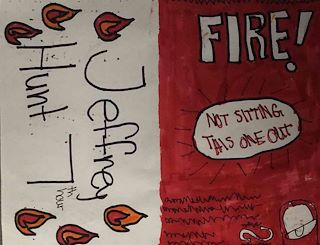 FIRE!
NOT SITTING
THIS ONE OUT
Jeffrey
Hunt
7th
hour